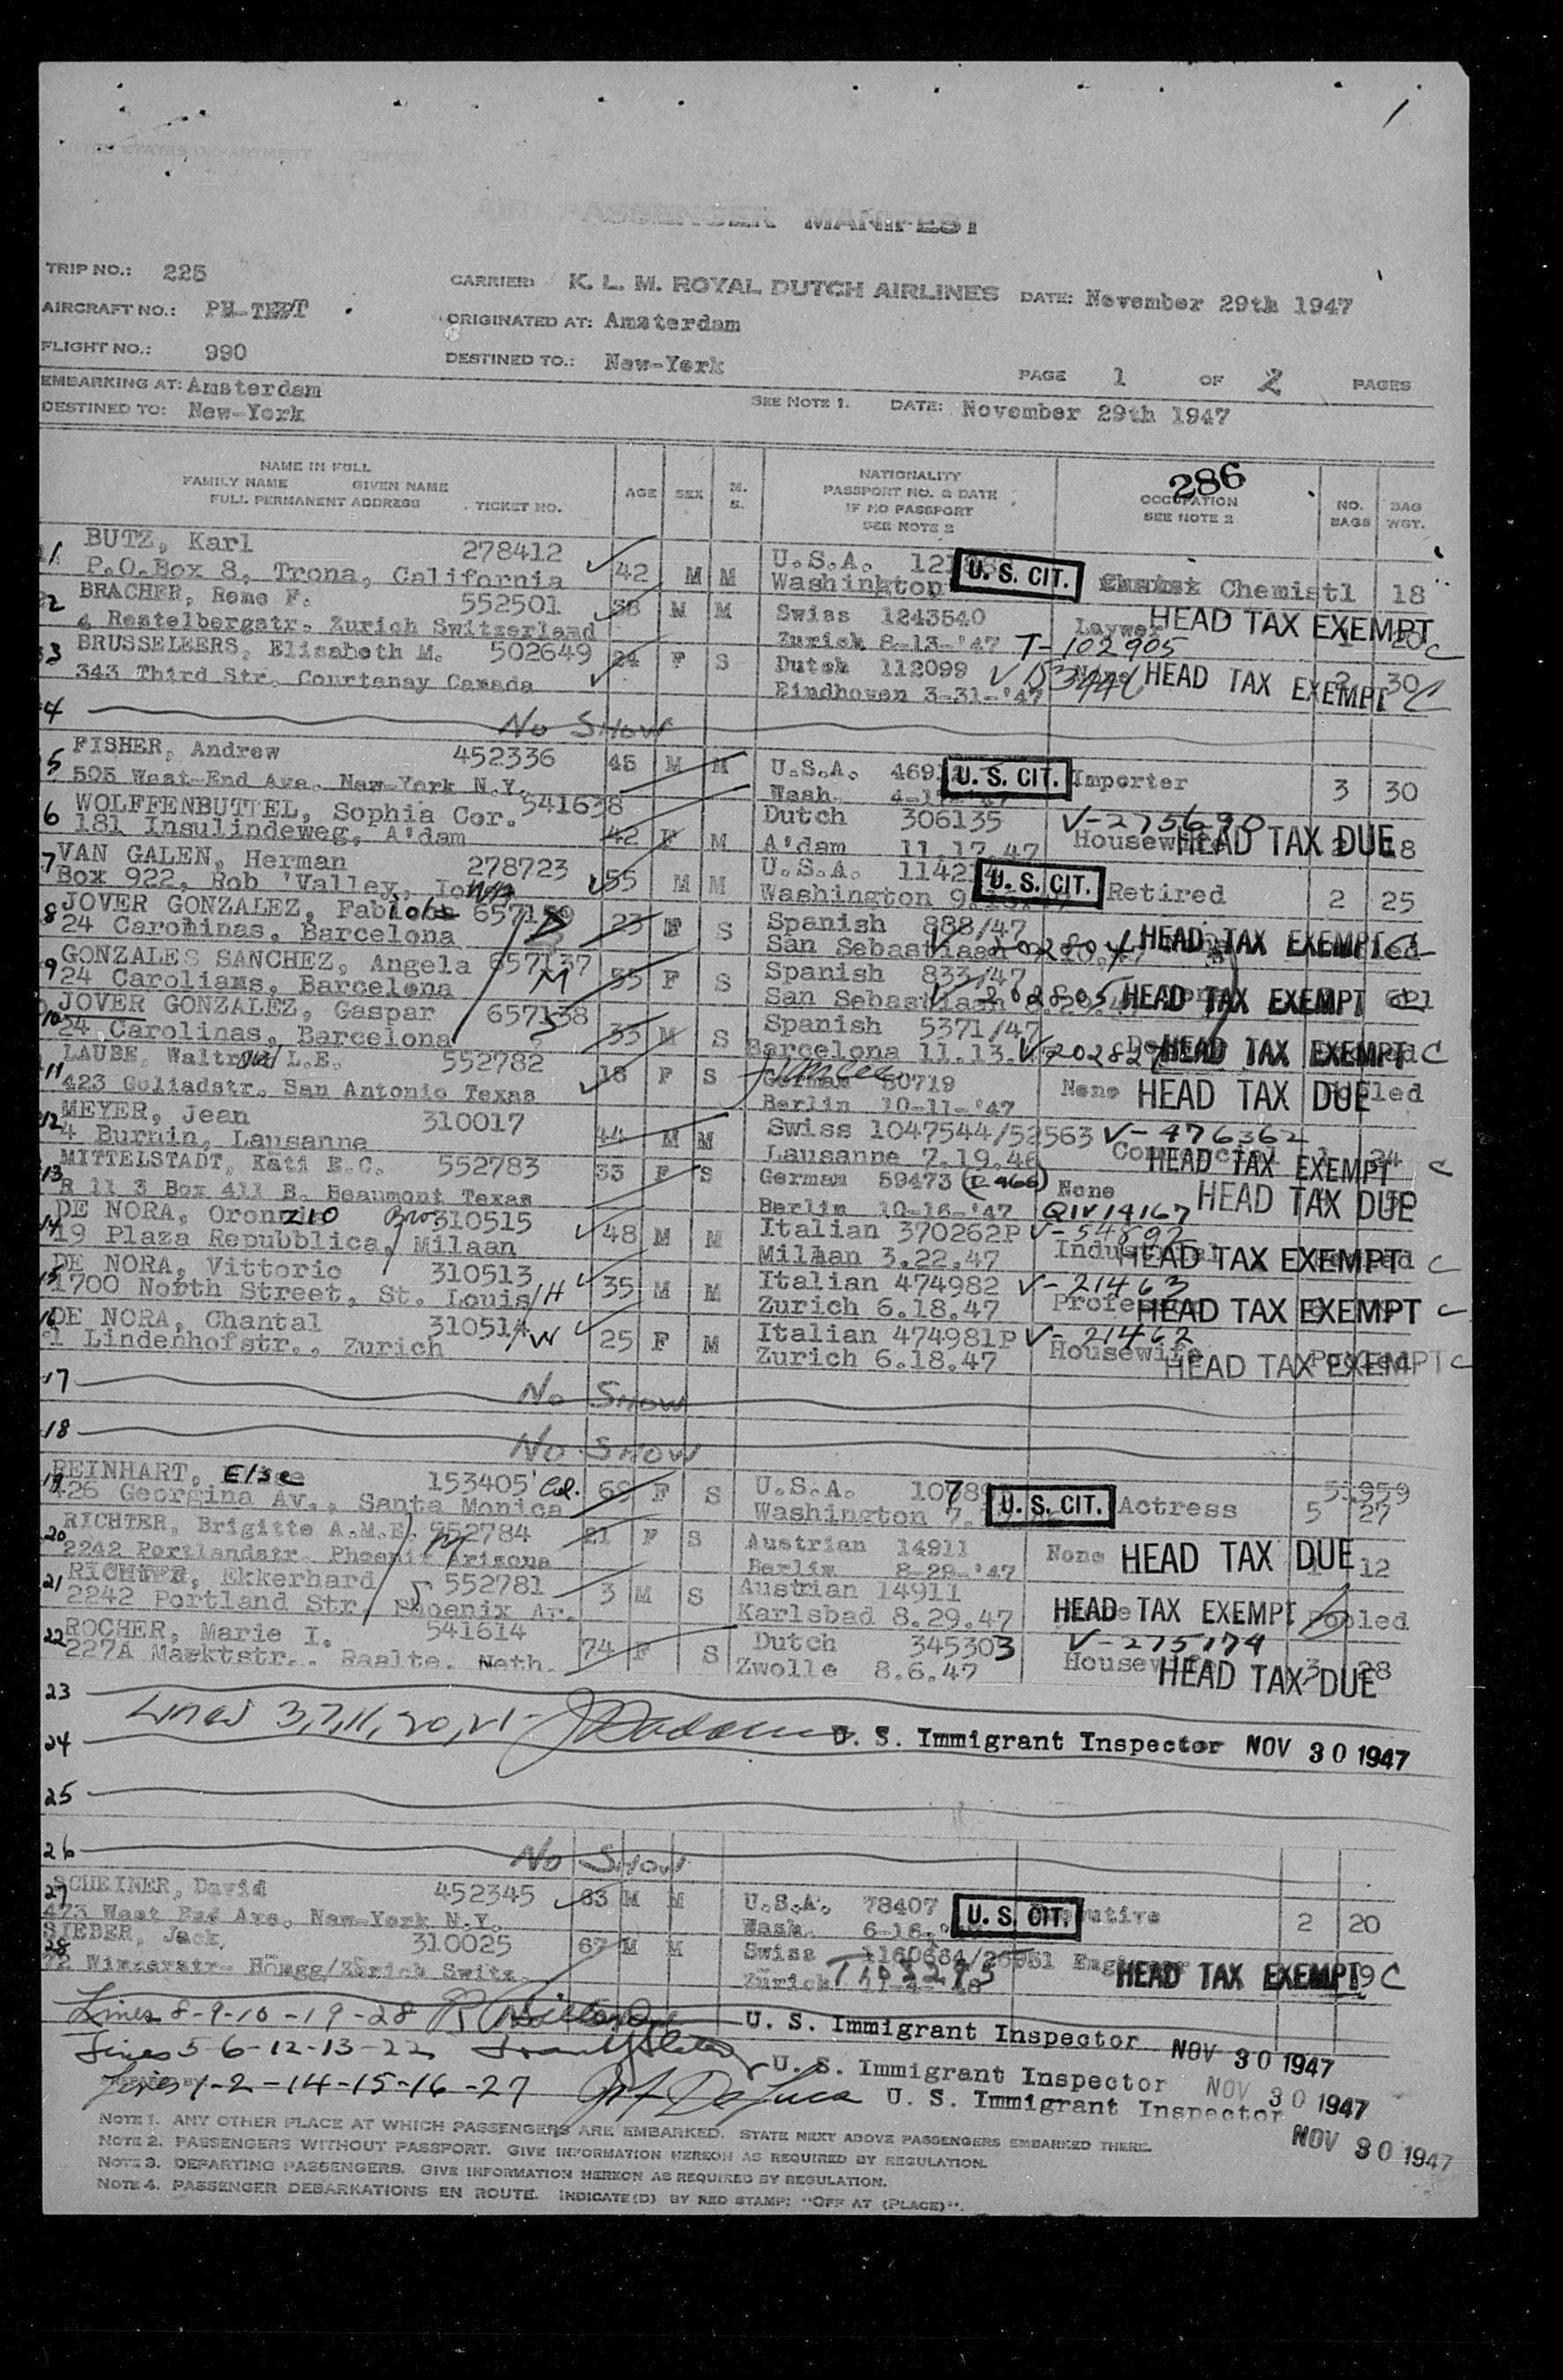 1
AIR PASSENGER MANIFEST
TRIP NO.: 225
CARRIER: K. L. M. ROYAL DUTCH AIRLINES DATE: November 29th 1947
AIRCRAFT NO.:
ORIGINATED AT: Amsterdam
FLIGHT NO.: 990
DESTINED TO.: New-York
PAGE 1 OF 2 PAGES
EMBARKING AT: Amsterdam
DESTINED TO: New-York
SEE NOTE 1. DATE: November 29th 1947
NAME IN FULL
FAMILY NAME GIVEN NAME
FULL PERMANENT ADDRESS TICKET NO.
AGE SEX M. S.
NATIONALITY
PASSPORT NO. & DATE
IF NO PASSPORT
SEE NOTE 2
286
OCCUPATION
SEE NOTE 2
NO. BAGS
BAG WGT.
1 BUTZ, Karl 278412 42 M M U.S.A. U. S. CIT. Chemist 1 18
P.O.Box 8, Trona, California Washington
2 BRACHER, Rene F. 552501 38 M M Swiss 1243540 HEAD TAX EXEMPT C
4 Restelbergstr. Zurich Switzerland Zurich 8-13-'47 T-102905
3 BRUSSELEERS, Elisabeth M. 502649 24 F S Dutch 112099 HEAD TAX EXEMPT C 2 30
343 Third Str. Courtenay Canada Eindhoven 3-31-'47
4 No Show
5 FISHER, Andrew 452336 45 M M U.S.A. U. S. CIT. Importer 3 30
505 West-End Ave. New-York N.Y. Wash.
6 WOLFFENBUTTEL, Sophia Cor. 541638 42 F M Dutch 306135 V-275690
181 Insulindeweg, A'dam A'dam 11.17.47 Housewife HEAD TAX DUE 18
7 VAN GALEN, Herman 278723 55 M M U.S.A. U. S. CIT. Retired 2 25
Box 922, Rob 'Valley, Washington
8 JOVER GONZALEZ, 23 F S Spanish 888/47
24 Carominas, Barcelona San Sebastiaan HEAD TAX EXEMPT C
9 GONZALES SANCHEZ, Angela 657137 M 55 F S Spanish 833/47
24 Caroliams, Barcelona San Sebastiaan HEAD TAX EXEMPT
10 JOVER GONZALEZ, Gaspar 657138 S 33 M S Spanish 5371/47
24 Carolinas, Barcelona Barcelona 11.13. HEAD TAX EXEMPT C
11 LAUBE, L.E. 552782 18 F S German 80719
423 Goliadstr. San Antonio Texas Berlin 10-11-'47 None HEAD TAX DUE
12 MEYER, Jean 310017 44 M M Swiss 1047544/52563 V-476362
4 Burnin, Lausanne Lausanne 7.19.46 HEAD TAX EXEMPT C
13 MITTELSTADT, Käti E.C. 552783 33 F S German 59473 None HEAD TAX DUE
R 11 3 Box 411 B. Beaumont Texas Berlin 10-16-'47 QIV14167
14 DE NORA, Bro 310515 48 M M Italian 370262P
19 Plaza Repubblica, Milaan Milaan 3.22.47 HEAD TAX EXEMPT C
15 DE NORA, Vittorio 310513 35 M M Italian 474982 V-21463
1700 North Street, St. Louis /H Zurich 6.18.47 HEAD TAX EXEMPT C
16 DE NORA, Chantal 310514 /W 25 F M Italian 474981P V-21462
1 Lindenhofstr., Zurich Zurich 6.18.47 Housewife HEAD TAX EXEMPT C
17 No Show
18 No Show
19 REINHART, Else 153405 F S U.S.A. U. S. CIT. Actress 5 27
426 Georgina Av., Santa Monica Washington
20 RICHTER, Brigitte A.M.E. 552784 21 F S Austrian 14911 None HEAD TAX DUE 12
2242 Portlandstr. Phoenix Arizona Berlin 8-29-'47
21 RICHTER, Ekkerhard 552781 3 M S Austrian 14911
2242 Portland Str. Phoenix Ar. Karlsbad 8.29.47 HEAD TAX EXEMPT Pooled
22 ROCHER, Marie I. 541614 74 F S Dutch 345303 V-275174
227A Marktstr.. Raalte. Neth. Zwolle 8.6.47 Housewife HEAD TAX DUE 28
23
Lines 3,7,11,20,21
24 U. S. Immigrant Inspector NOV 30 1947
25
26 No Show
27 SCHEINER, David 452345 63 M M U.S.A. 78407 U. S. CIT. 2 20
473 West End Ave. New-York N.Y. Wash.
28 SIEBER, Jack 310025 67 M M Swiss
72 Winzerstr- Höngg/Zürich Switz. Zürich HEAD TAX EXEMPT C
Lines 8-9-10-19-28 U. S. Immigrant Inspector NOV 30 1947
Lines 5-6-12-13-22 U. S. Immigrant Inspector NOV 30 1947
Lines 1-2-14-15-16-27 U. S. Immigrant Inspector NOV 30 1947
NOTE 1. ANY OTHER PLACE AT WHICH PASSENGERS ARE EMBARKED. STATE NEXT ABOVE PASSENGERS EMBARKED THERE.
NOTE 2. PASSENGERS WITHOUT PASSPORT. GIVE INFORMATION HEREON AS REQUIRED BY REGULATION.
NOTE 3. DEPARTING PASSENGERS. GIVE INFORMATION HEREON AS REQUIRED BY REGULATION.
NOTE 4. PASSENGER DEBARKATIONS EN ROUTE. INDICATE(D) BY RED STAMP: "OFF AT (PLACE)".